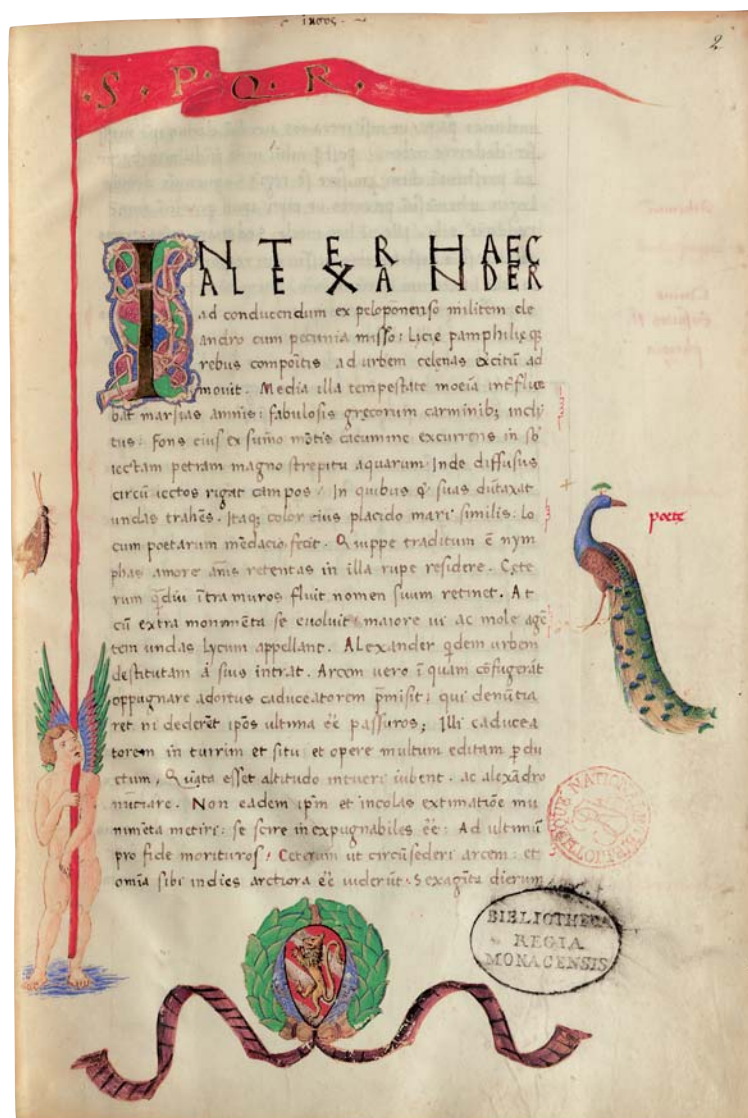 ιησους.
2
S.P.Q.R.
INTER HAEC
ALEXANDER
ad conducendum ex peloponenso militem cle
andro cum pecunia misso: Lycie pamphilieqȝ
rebus compoitis ad urbem celenas exercitū ad
mouit. Media illa tempestate moenia interflue
bat marsias amnis: fabulosis grecorum carminibȝ incly
tus: Fons eius ex sūmo mōtis cacumine excurrens in sb
iectam petram magno strepitu aquarum: Inde diffusus
circū iectos rigat campos: In quibus suas dūtaxat
undas trahēs. Itaqȝ color eius placido mari similis: Lo
cum poetarum mēdacio fecit. Quippe traditum ē nym
phas amore amīs retentas in illa rupe residere. Cete
poete
rum q̄diu ītra muros fluit nomen suum retinet. At
cū extra monimēta se euoluit: maiore ui ac mole agē
tem undas Lycum appellant. Alexander qdem urbem
destitutam á suis intrat. Arcem uero ī quam cōfugerāt
oppugnare adortus caduceatorem p̄misit: qui denūtia
ret ni dederēt ipōs ultima eē passuros; Illi caducea
torem in turrim et situ et opere multum editam pdu
ctum, Quāta esset altitudo intueri iubent. ac alexādro
nūtiare. Non eadem ipm et incolas extimatiōe mu
nimēta metiri: se scire inexpugnabiles eē: Ad ultimū
pro fide morituros: Ceterum ut circūsederi arcem: et
omīa sibi indies arctiora eē uiderūt. Sexagīta dierum
BIBLIOTHECA
REGIA
MONACENSIS